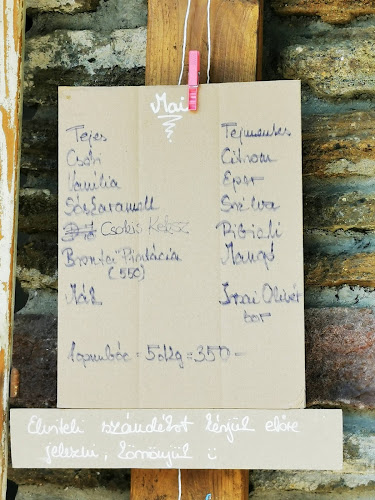 Mai
Tejes
Csoki
Vanília
Sóskaramell
Csokis Keksz
Brontei Pisztácia
(550)
Mák
Tejmentes
Citrom
Eper
Szilva
Ribizli
Mangó
Irsai Olivér
bor
1 gombóc = 5dkg = 350-
Elviteli szándékot kérjük előre
jelezni, köszönjük :)